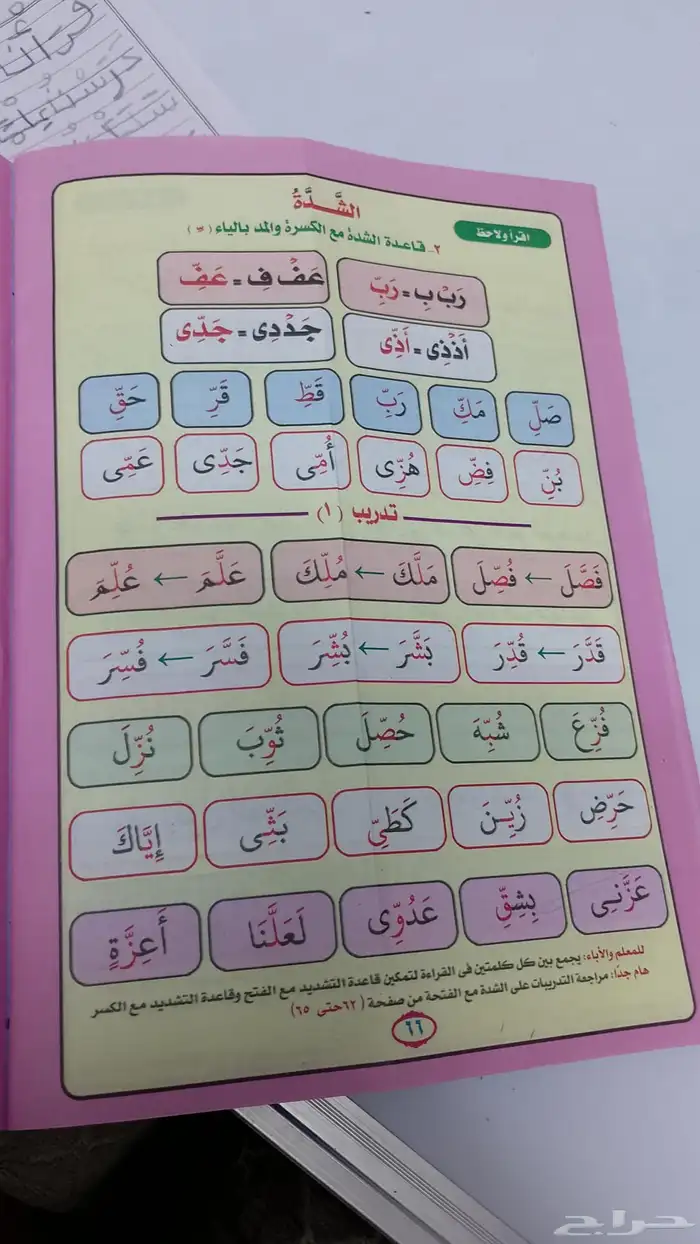 الشَّدَّةُ
اقرأ ولاحظ
٢ـ قاعدة الشدة مع الكسرة والمد بالياء ( ـِّ )
رَبْ بِ = رَبِّ عَفْ فِ = عَفِّ
أَذْذِى = أَذِّى جَدْدِى = جَدِّى
صَلِّ مَكِّ رَبِّ قَطِّ قَرِّ حَقِّ
بُنِّ فِضِّ هُزِّى أُمِّى جَدِّى عَمِّى
تدريب (١)
فَصَّلَ ← فُصِّلَ مَلَّكَ ← مُلِّكَ عَلَّمَ ← عُلِّمَ
قَدَّرَ ← قُدِّرَ بَشَّرَ ← بُشِّرَ فَسَّرَ ← فُسِّرَ
فُزِّعَ شُبِّهَ حُصِّلَ ثُوِّبَ نُزِّلَ
حَرِّضِ زُيِّنَ كَطَيِّ بَثِّى إِيَّاكَ
عَزَّنِى بِشِقِّ عَدُوِّى لَعَلَّنَا أَعِزَّةٍ
للمعلم والأباء: يجمع بين كل كلمتين فى القراءة لتمكين قاعدة التشديد مع الفتح وقاعدة التشديد مع الكسر
هام جدًا: مراجعة التدريبات على الشدة مع الفتحة من صفحة (٦٢ حتى ٦٥)
٦٦
حراج